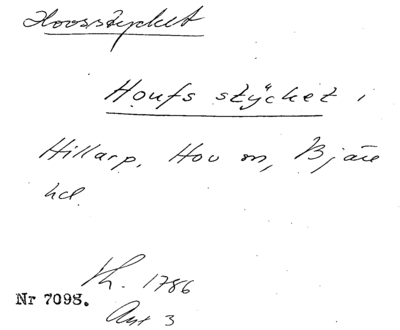 Hovsstycket
Houfs stÿcket i
Hillarp, Hov sn, Bjäre
hd.
Lh. 1786
Nr 7098.
Akt 3